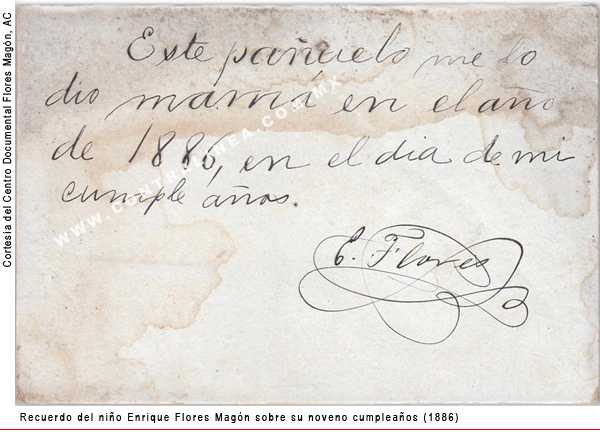 Cortesia del Centro Documental Flores Magón, AC
Este pañuelo me lo
dio mamá en el año
de 1886, en el dia de mi
cumple años.
E. Flores
WWW.CONTRALINEA.COM.MX
Recuerdo del niño Enrique Flores Magón sobre su noveno cumpleaños (1886)